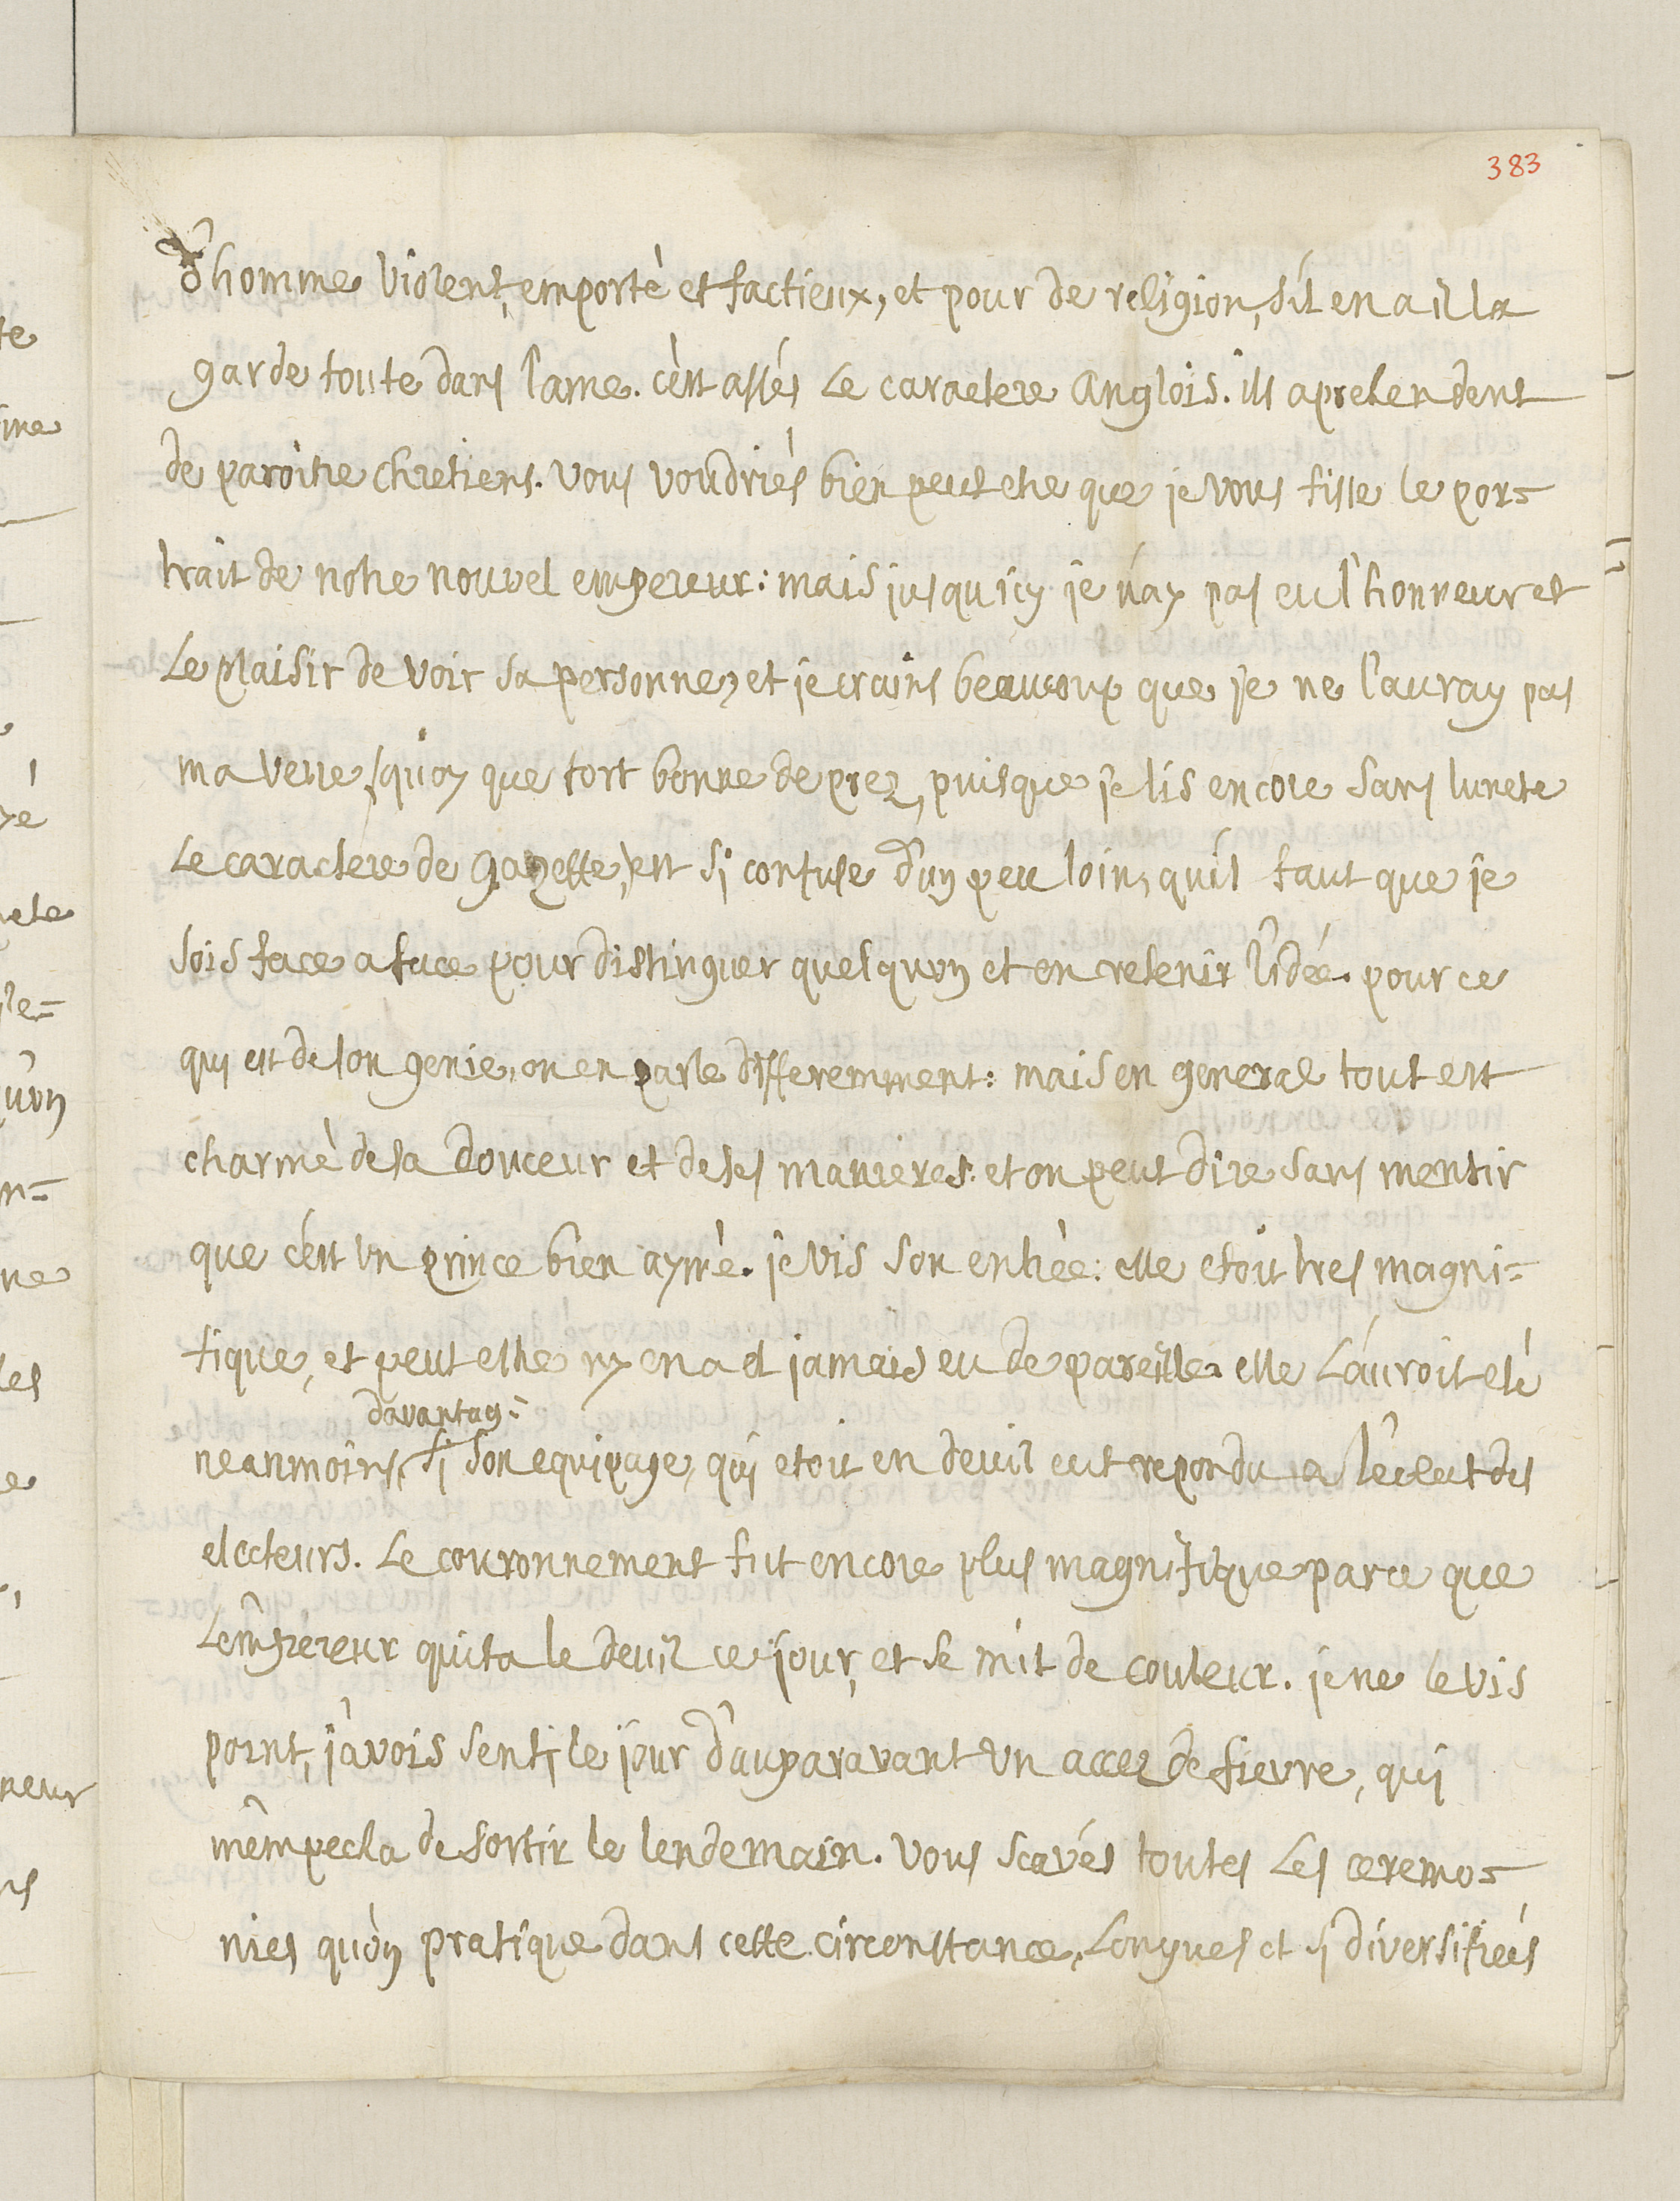 383
d'homme violent, emportè et factieux, et pour de religion, s'il en a il la
garde toute dans l'ame. c'est assés le caractere Anglois. ils aprehendent
de paroitre chretiens. vous voudriés bien peut etre que je vous fisse le por=
trait de notre nouvel empereur: mais jusqu'icy je n'ay pas eu l'honneur et
le plaisir de voir sa personne, et je crains beaucoup que je ne l'auray pas
ma veue (quoy que fort bonne de prez, puisque je lis encore sans lunete
le caractere de gazette,) est si confuse d'un peu loin, qu'il faut que je
sois face a face pour distinguer quelquun et en retenir l'idée. pour ce
qui est de son genie, on en parle differemment: mais en general tout est
charmè de sa douceur et de ses manieres. et on peut dire sans mentir
que c'est un prince bien aymè. je vis son entrèe: elle etoit tres magni=
fique, et peut estre ny en a et jamais eu de pareille. elle l'auroit etè
davantag=
neanmoins, si son equipage, qui etoit en deuil eut repondu a l'eclat des
electeurs. Le couronnement fut encore plus magnifique parce que
l'empereur quita le deuil ce jour, et se mit de couleur. je ne le vis
point, j'avois senti le jour d'auparavant un accez de fievre, qui
m'empecha de sortir le lendemain. vous scavés toutes les ceremo=
nies qu'on pratique dans cette circonstance, longues et si diversifiées
te
ine
ye
ele
le=
uon
n=
ne
les
e
neur
ns